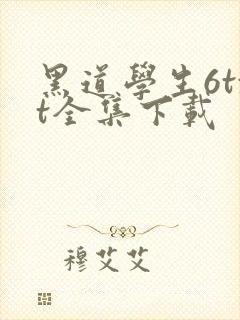 黑道學生6tx
t全集下載
穆艾艾